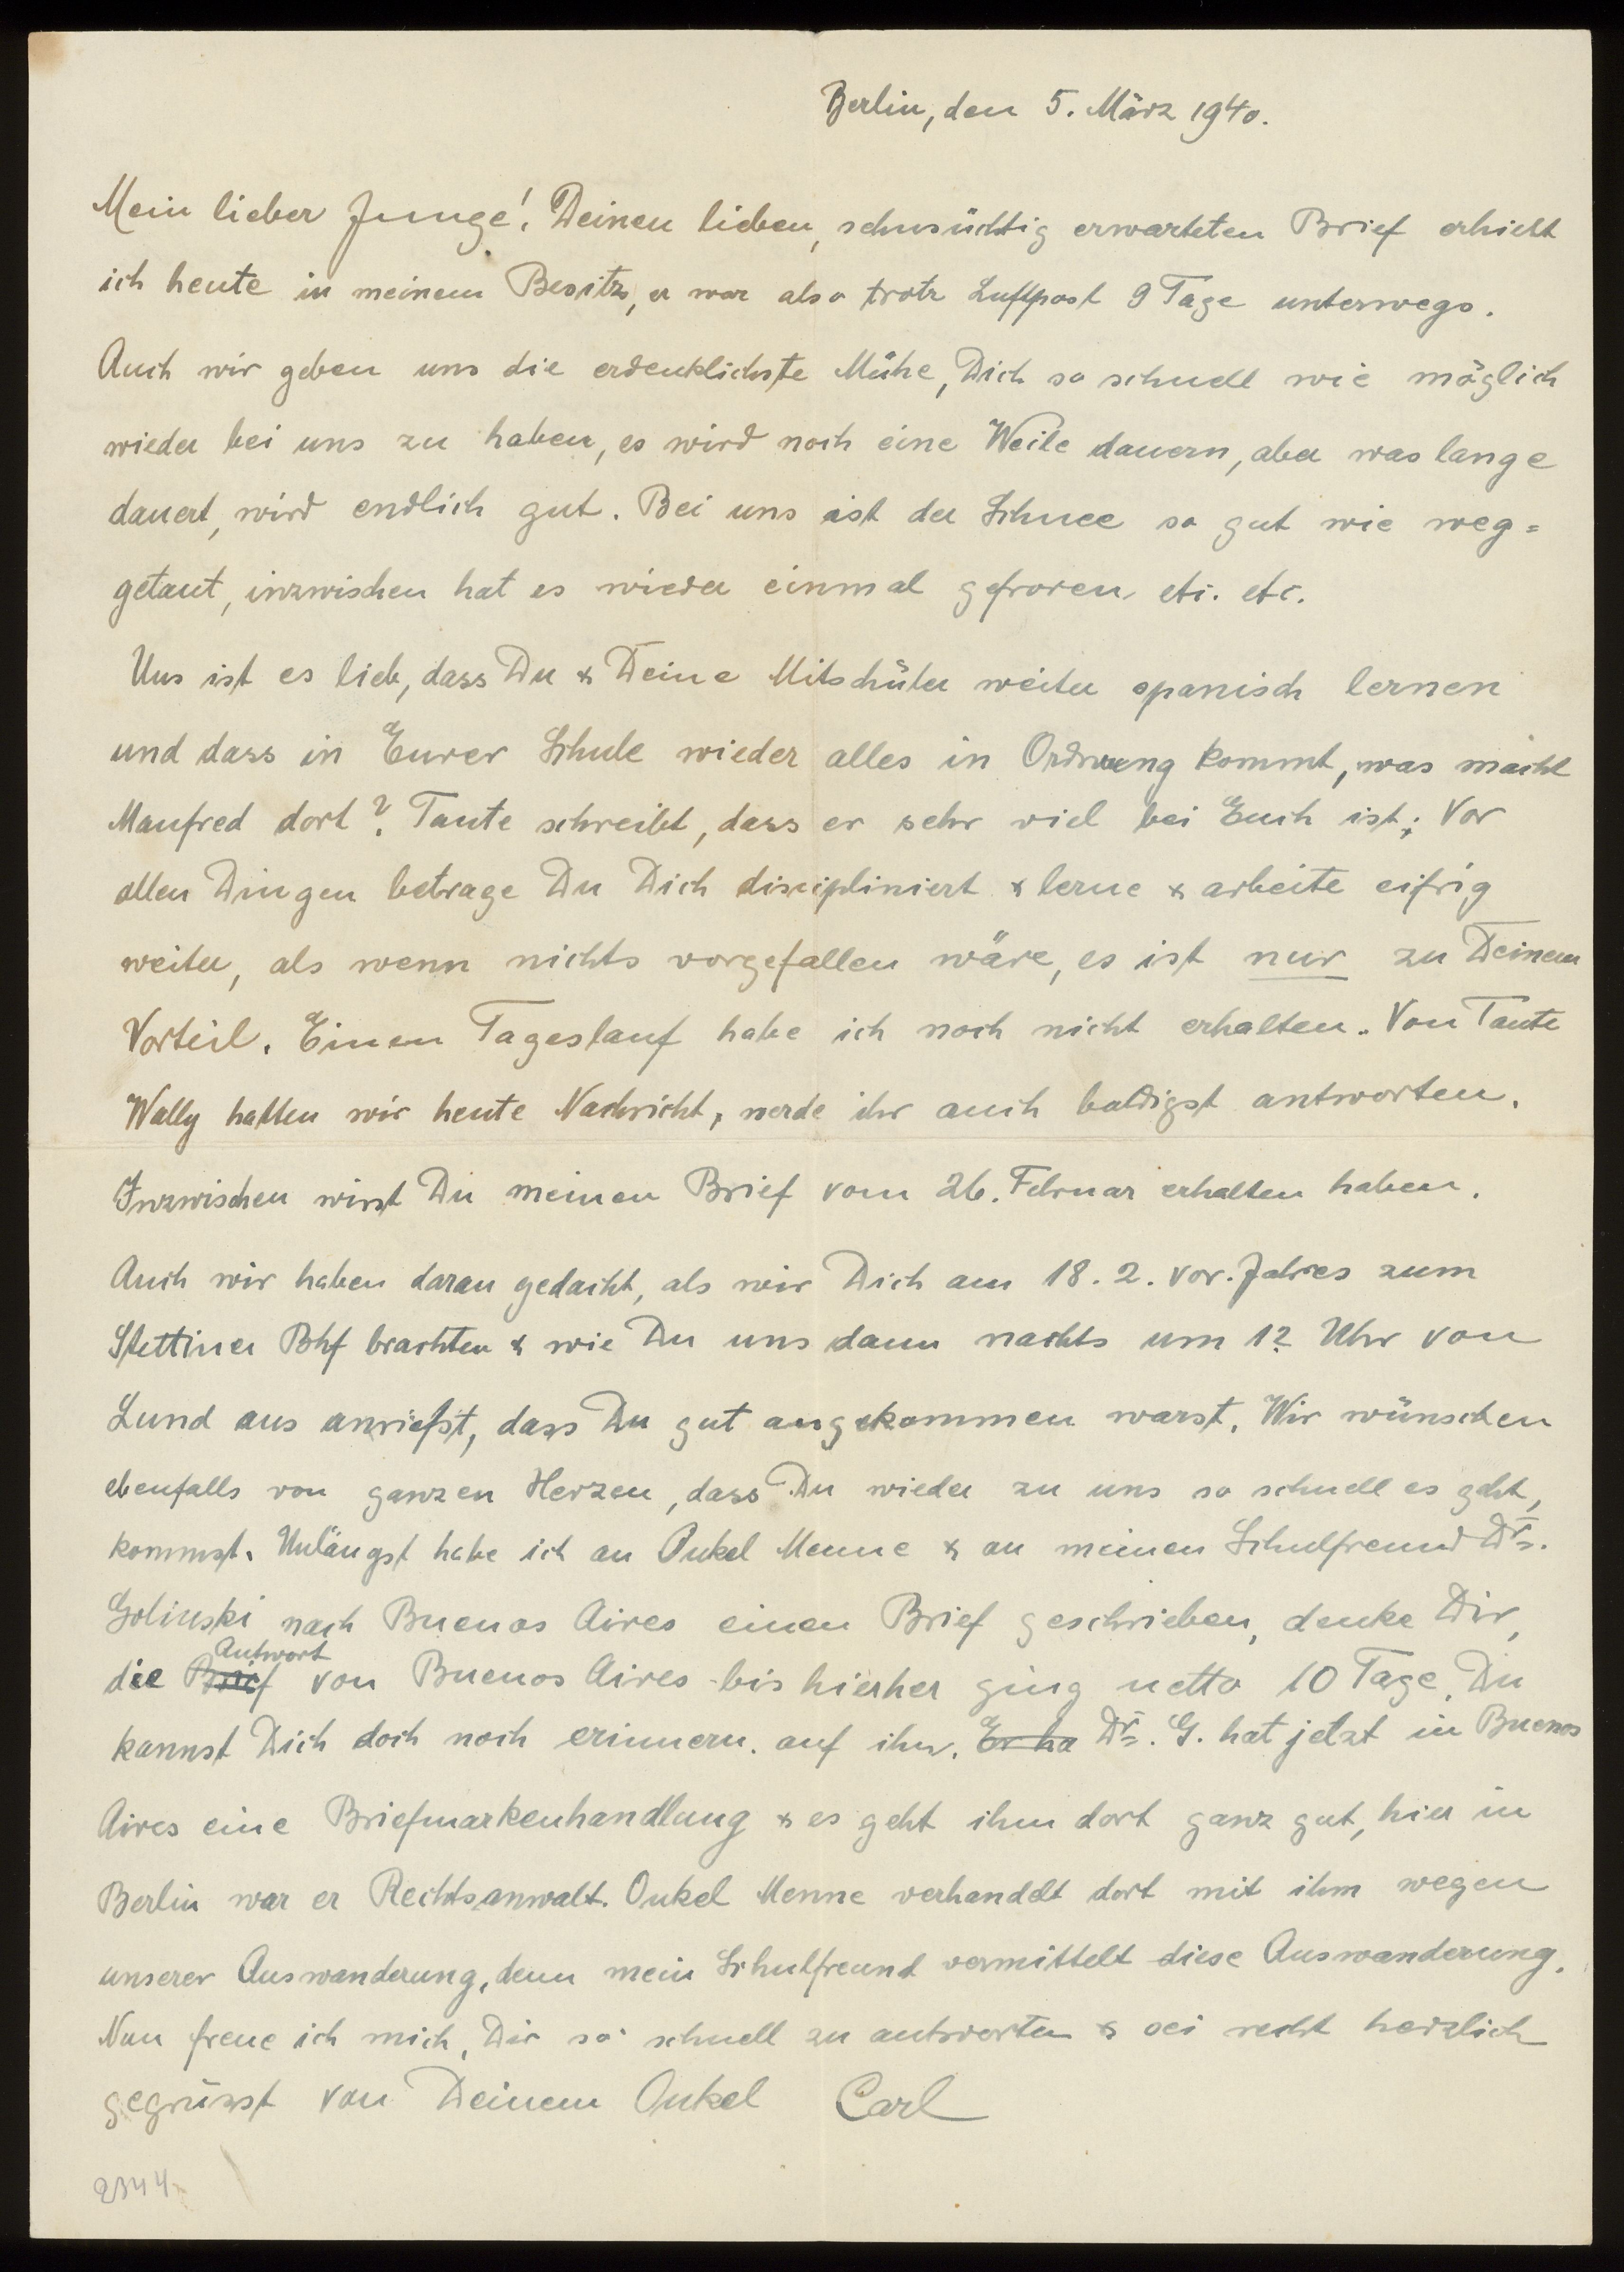 Berlin, den 5. März 1940.
Mein lieber Junge! Deinen lieben, sehnsüchtig erwarteten Brief erhielt
ich heute in meinem Besitz, er war also trotz Luftpost 9 Tage unterwegs.
Auch wir geben uns die erdenklichste Mühe, Dich so schnell wie möglich
wieder bei uns zu haben, es wird noch eine Weile dauern, aber was lange
dauert, wird endlich gut. Bei uns ist der Schnee so gut wie weg=
getaut, inzwischen hat es wieder einmal gefroren etc. etc.
Uns ist es lieb, dass Du & Deine Mitschüler weiter spanisch lernen
und dass in Eurer Schule wieder alles in Ordnung kommt, was macht
Manfred dort? Tante schreibt, dass er sehr viel bei Euch ist; Vor
allen Dingen betrage Du Dich discipliniert & lerne & arbeite eifrig
weiter, als wenn nichts vorgefallen wäre, es ist nur zu Deinem
Vorteil. Einen Tageslauf habe ich noch nicht erhalten. Von Tante
Wally hatten wir heute Nachricht, werde ihr auch baldigst antworten.
Inzwischen wirst Du meinen Brief vom 26. Februar erhalten haben.
Auch wir haben daran gedacht, als wir Dich am 18. 2. vor. Jahres zum
Stettiner Bhf brachten & wie Du uns dann nachts um 12 Uhr von
Lund aus anriefst, dass Du gut angekommen warst. Wir wünschen
ebenfalls von ganzen Herzen, dass Du wieder zu uns so schnell es geht,
kommst. Unlängst habe ich an Onkel Menne & an meinen Schulfreund Dr.
Golinski nach Buenos Aires einen Brief geschrieben, denke Dir,
Antwort
die Brief von Buenos Aires bis hierher ging netto 10 Tage. Du
kannst Dich doch noch erinnern. auf ihn. Er ha Dr. G. hat jetzt in Buenos
Aires eine Briefmarkenhandlung & es geht ihm dort ganz gut, hier in
Berlin war er Rechtsanwalt. Onkel Menne verhandelt dort mit ihm wegen
unserer Auswanderung, denn mein Schulfreund vermittelt diese Auswanderung.
Nun freue ich mich, Dir so schnell zu antworten & sei recht herzlich
gegrüsst von Deinem Onkel Carl
2344